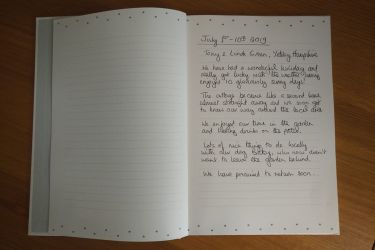 July 1st - 10th 2019
Tony & Linda Green, Yateley Hampshire
We have had a wonderful holiday and
really got lucky with the weather having
enjoyed 10 gloriously sunny days!
The cottage became like a second home
almost straight away and we soon got
to know our way around the local area
We enjoyed our time in the garden
and having drinks on the patio.
Lots of nice things to do locally
with our dog, who now doesn't
want to leave the garden behind.
We have promised to return soon...